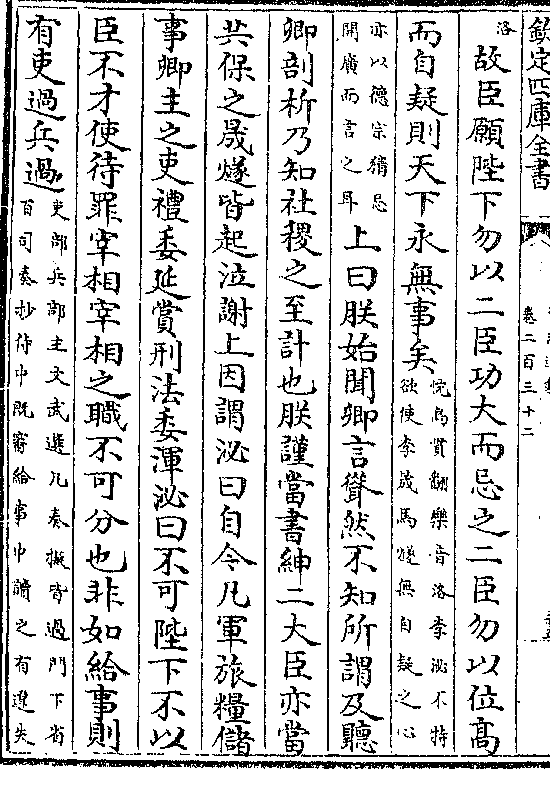 欽定四庫全書
卷二百三十二
洛故臣願陛下勿以二臣功大而忌之二臣勿以位高
而自疑則天下永無事矣
賞翻樂音洛李泌不特
欲使李晟馬燧無自疑之心
亦以德宗猜忌
開廣而言之耳
上曰朕始聞卿言聳然不知所謂及聽
卿剖析乃知社稷之至計也朕謹當書紳二大臣亦當
共保之晟燧皆起泣謝上因謂泌曰自今凡軍旅糧儲
事卿主之吏禮委延賞刑法委渾泌曰不可陛下不以
臣不才使待罪宰相宰相之職不可分也非如給事則
有吏過兵過
吏部兵部主文武選凡奏擬皆過門下省
百司奏抄侍中既審給事中讀之有違失